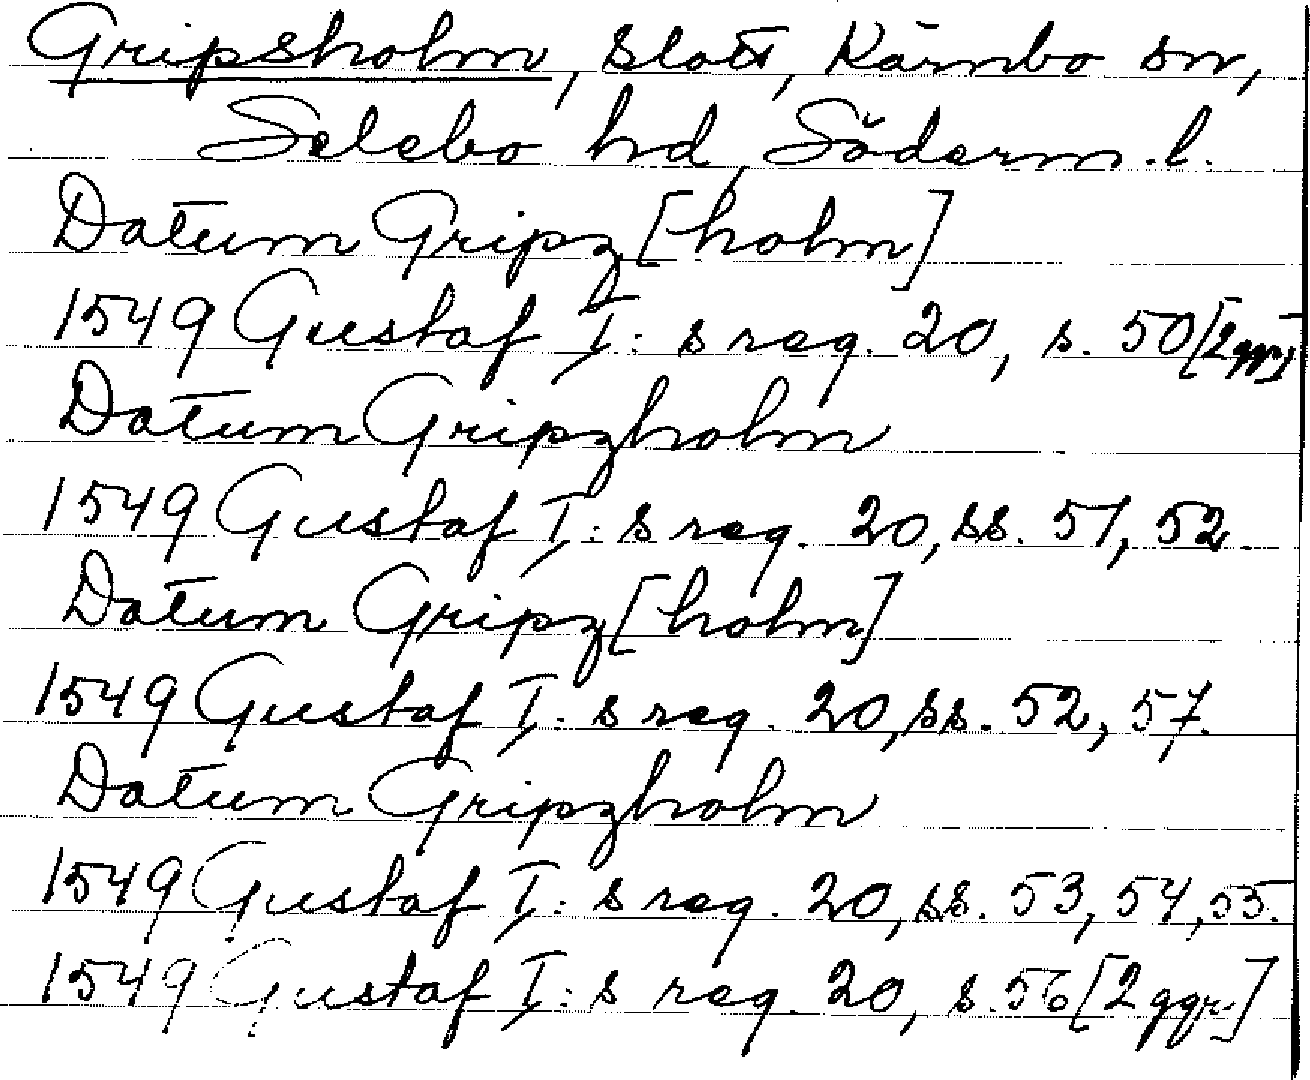 Gripsholm, slott, Kärnbo sn,
Selebo hd, Söderm. l.
Datum Gripz[holm]
1549 Gustaf I: s reg. 20, s. 50 [2 ggr]
Datum Gripzholm
1549 Gustaf I: s reg. 20, ss. 51, 52.
Datum Gripz[holm]
1549 Gustaf I: s reg. 20, ss. 52, 57.
Datum Gripzholm
1549 Gustaf I: s reg. 20, ss. 53, 54, 55.
1549 Gustaf I: s reg. 20, s. 56 [2 ggr.]